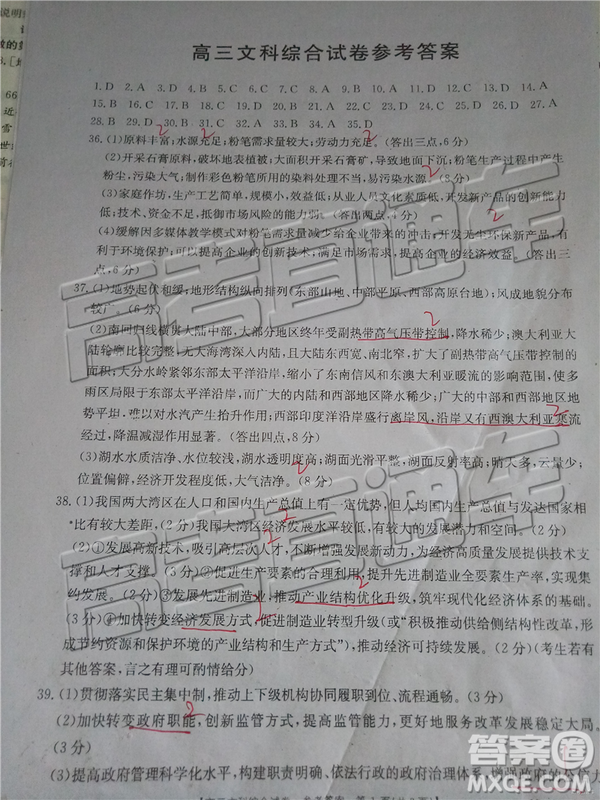 高三文科综合试卷参考答案
1. D 2. A 3. D 4. C 5. B 6. C 7. B 8. A 9. D 10. B 11. D 12. C 13. A 14. A
15. B 16. C 17. D 18. C 19. B 20. D 21. C 22. A 23. B 24. C 25. D 26. D 27. A
28. B 29. D 30. B 31. C 32. A 33. B 34. A 35. D
36. (1)原料丰富;水源充足;粉笔需求量较大;劳动力充足。(答出三点,6分)
(2)开采石膏原料,破坏地表植被;大面积开采石膏矿,导致地面下沉;粉笔生产过程中产生
粉尘,污染大气;制作彩色粉笔所用的染料处理不当,易污染水源。(8分)
(3)家庭作坊,生产工艺简单,规模小,效益低;从业人员文化素质低,开发新产品的创新能力
低;技术、资金不足,抵御市场风险的能力弱。(答出两点,4分)
(4)缓解因多媒体教学模式对粉笔需求量减少给企业带来的冲击;开发无尘环保新产品,有
利于环境保护;可以提高企业的创新技术;满足市场需求,提高企业的经济效益。(答出三
点,6分)
37. (1)地势起伏和缓;地形结构纵向排列(东部山地、中部平原、西部高原台地);风成地貌分布
较广。(6分)
(2)南回归线横贯大陆中部,大部分地区终年受副热带高气压带控制,降水稀少;澳大利亚大
陆轮廓比较完整,无大海湾深入内陆,且大陆东西宽、南北窄,扩大了副热带高气压带的范围;
高大的大分水岭紧邻东部太平洋沿岸,缩小了东南信风和东澳大利亚暖流的影响范围,使多
雨区局限于东部太平洋沿岸,而广大的内陆和西部地区降水稀少;广大的中部和西部地区地
势平坦,难以对水汽产生抬升作用;西部印度洋沿岸盛行离岸风,沿岸又有西澳大利亚寒流
经过,降温减湿作用显著。(答出四点,8分)
(3)湖水水质清净、水位较浅,湖水透明度高;湖面光滑平整,湖面反射率高;晴天多,云量少;
位置偏僻,经济开发程度低,大气洁净。(8分)
38. (1)我国两大湾区在人口和国内生产总值上有一定优势,但人均国内生产总值与发达国家相
比有较大差距,(2分)我国大湾区经济发展水平较低,有较大的发展潜力和空间。(2分)
(2)①发展高新技术,吸引高层次人才,不断增强发展新动力,为经济高质量发展提供技术支
撑和人才支撑。(3分)②促进生产要素的合理利用,提升先进制造业的全要素生产率,实现集
约发展。(3分)③发展先进制造业,推动产业结构优化升级,筑牢现代化经济体系的基础。
(3分)④加快转变经济发展方式,促进制造业转型升级(或“积极推动供给侧结构性改革,形
成节约资源和保护环境的产业结构和生产方式”),推动经济可持续发展。(2分)(考生若有
其他答案,言之有理可酌情给分)
39. (1)贯彻落实民主集中制,推动上下级机构协同履职到位、流程通畅。(3分)
(2)加快转变政府职能,创新监管方式,提高监管能力,更好地服务改革发展稳定大局。
(3分)
(3)提高政府管理科学化水平,构建职责明确、依法行政的政府治理体系,增强政府的公
高考直通车
高考直通车
高考直通车
答案圈
MXQE.COM